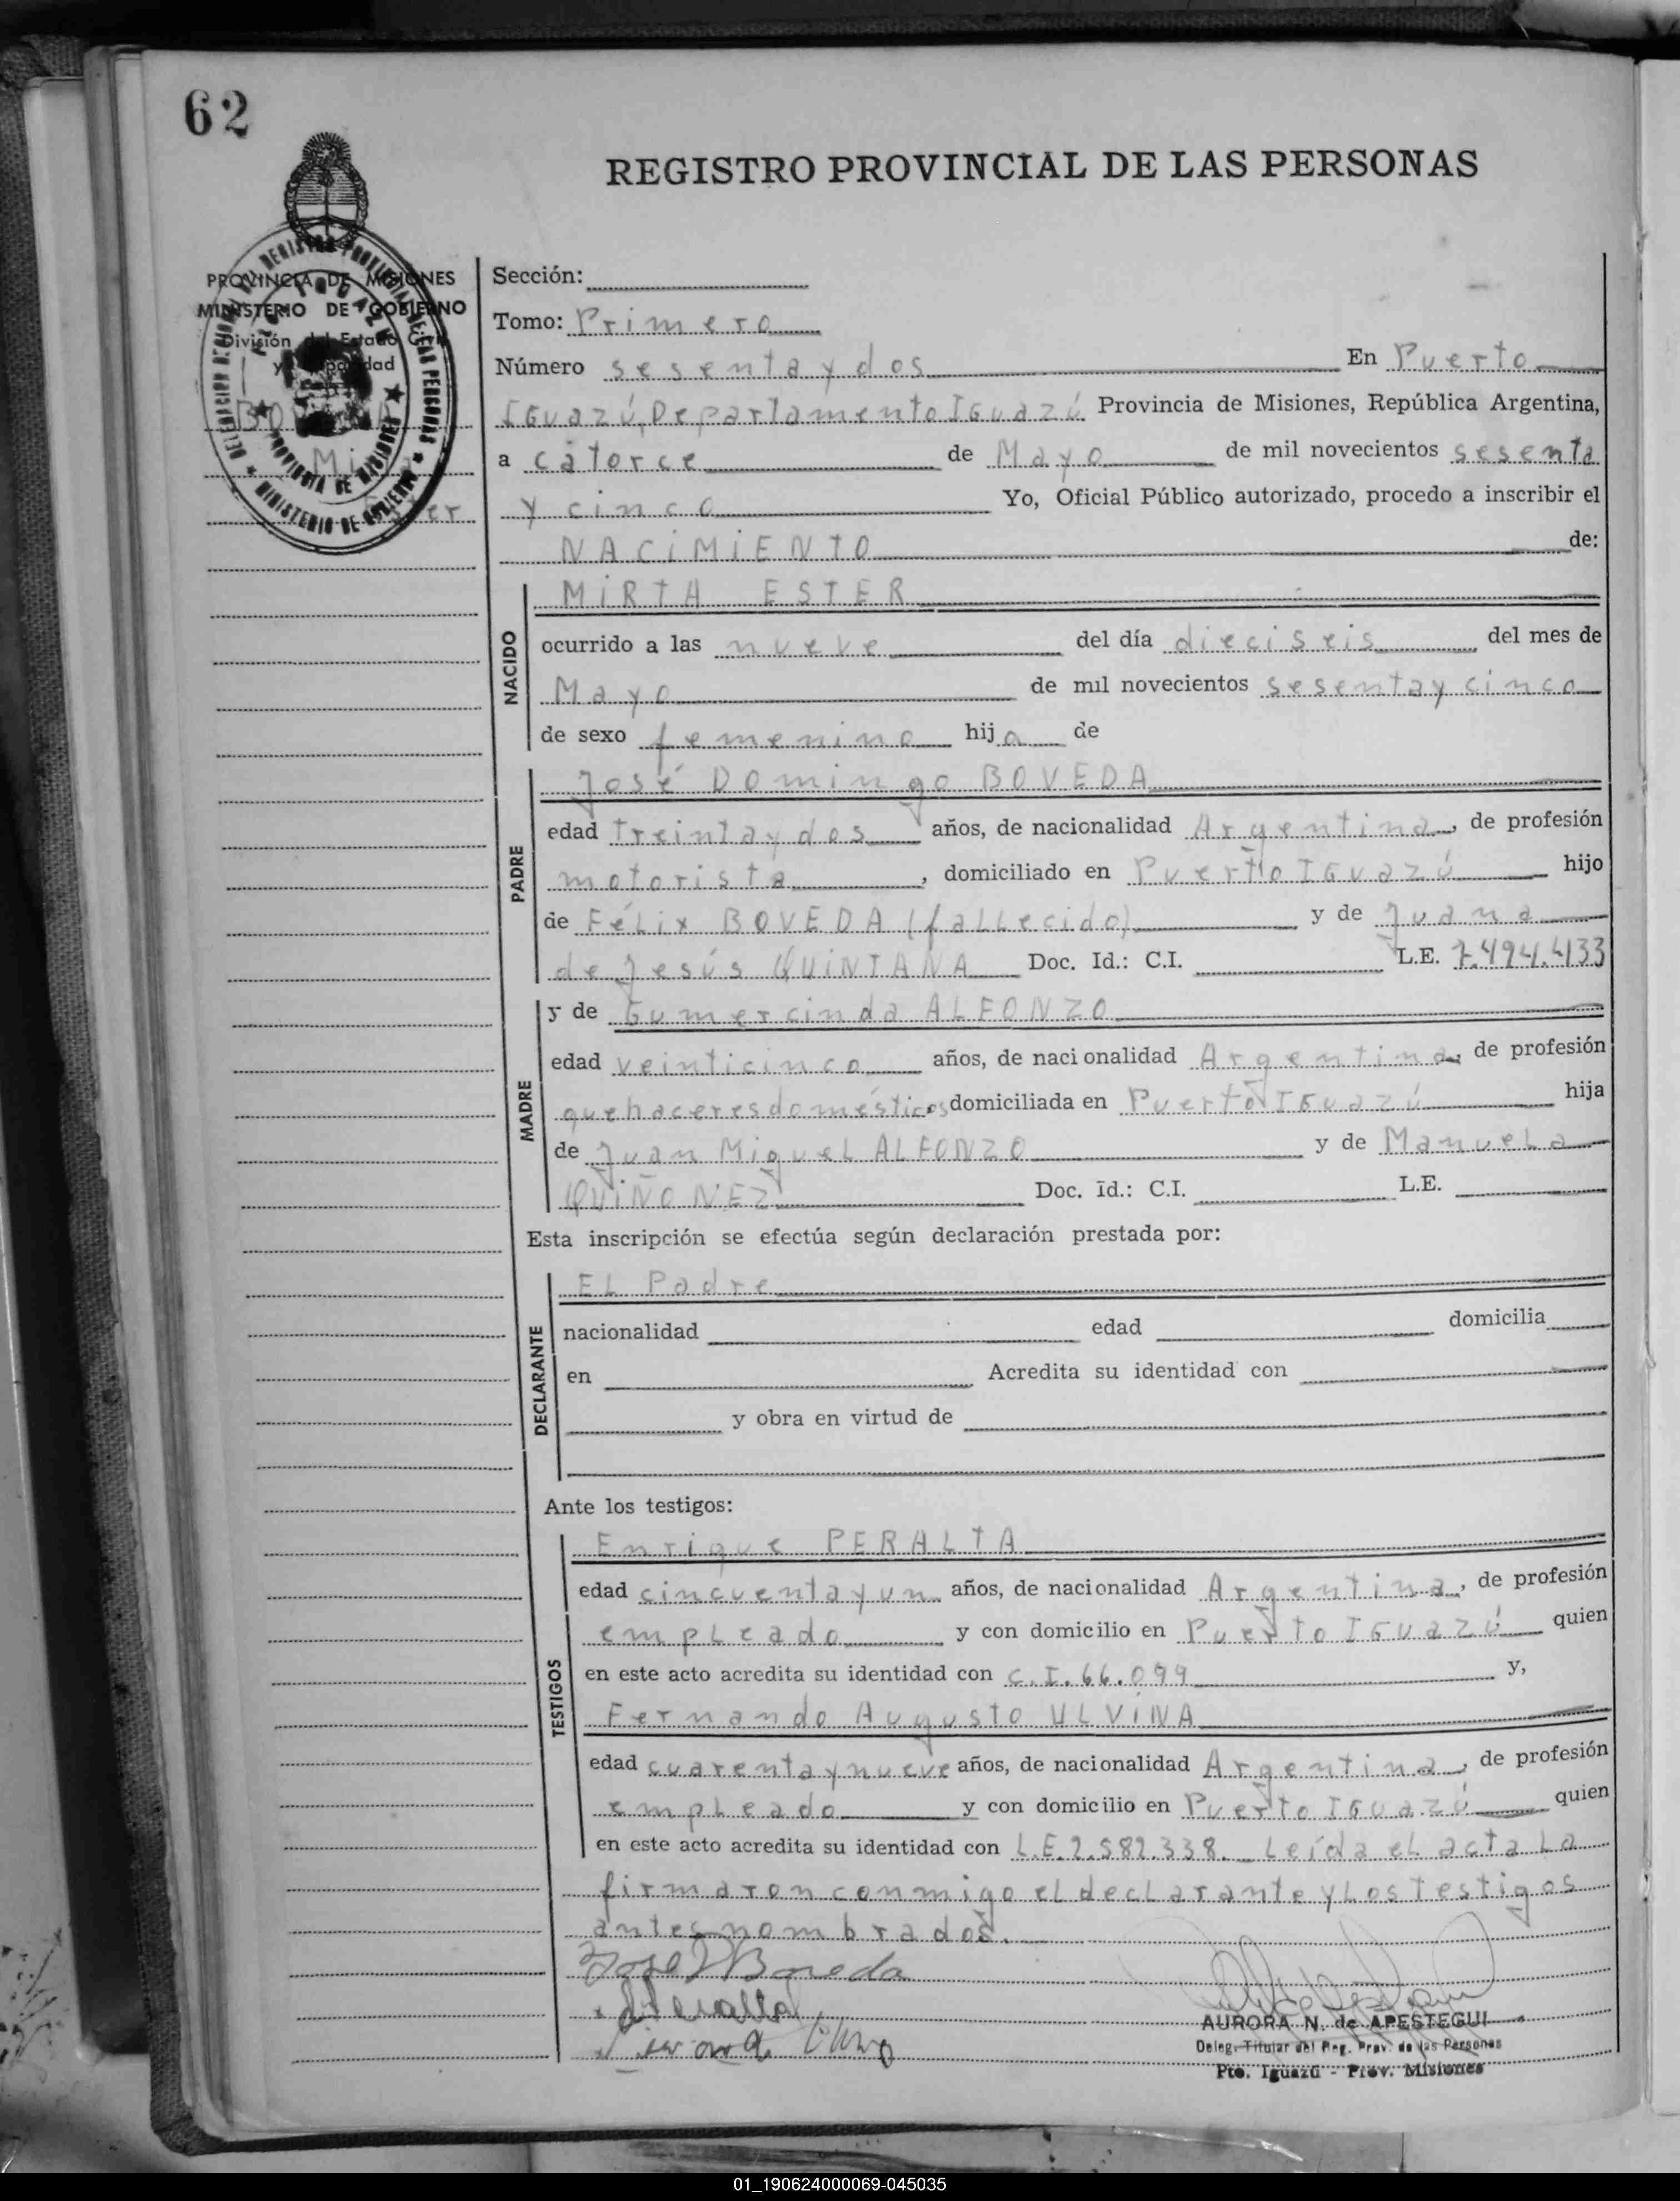 62
REGISTRO PROVINCIAL DE LAS PERSONAS
PROVINCIA DE MISIONES
MINISTERIO DE GOBIERNO
División del Estado Civil
y Capacidad
BOVEDA
Mirta
Ester
Sección:
Tomo: Primero
Número sesenta y dos En Puerto
Iguazú, Departamento Iguazú Provincia de Misiones, República Argentina,
a catorce de Mayo de mil novecientos sesenta
y cinco Yo, Oficial Público autorizado, procedo a inscribir el
NACIMIENTO de:
NACIDO
MIRTA ESTER
ocurrido a las nueve del día dieciseis del mes de
Mayo de mil novecientos sesenta y cinco
de sexo femenino hija de
PADRE
José Domingo BOVEDA
edad treinta y dos años, de nacionalidad Argentina, de profesión
motorista, domiciliado en Puerto Iguazú hijo
de Félix BOVEDA (fallecido) y de Juana
de Jesús QUINTANA Doc. Id.: C.I. L.E. 7.494.433
MADRE
y de Gumercinda ALFONZO
edad veinticinco años, de nacionalidad Argentina, de profesión
quehaceres domésticos domiciliada en Puerto Iguazú hija
de Juan Miguel ALFONZO y de Manuela
QUIÑONEZ Doc. Id.: C.I. L.E.
Esta inscripción se efectúa según declaración prestada por:
DECLARANTE
El Padre
nacionalidad edad domicilia
en Acredita su identidad con
y obra en virtud de
Ante los testigos:
TESTIGOS
Enrique PERALTA
edad cincuenta y un años, de nacionalidad Argentina, de profesión
empleado y con domicilio en Puerto Iguazú quien
en este acto acredita su identidad con C.I. 66.099 y,
Fernando Augusto ULVINA
edad cuarenta y nueve años, de nacionalidad Argentina, de profesión
empleado y con domicilio en Puerto Iguazú quien
en este acto acredita su identidad con L.E. 2.582.338. Leída el acta la
firmaron conmigo el declarante y los testigos
antes nombrados.
José D Boveda
AURORA N. de APESTEGUI
Deleg. Titular del Reg. Prov. de las Personas
Pto. Iguazú - Prov. Misiones
01_190624000069-045035